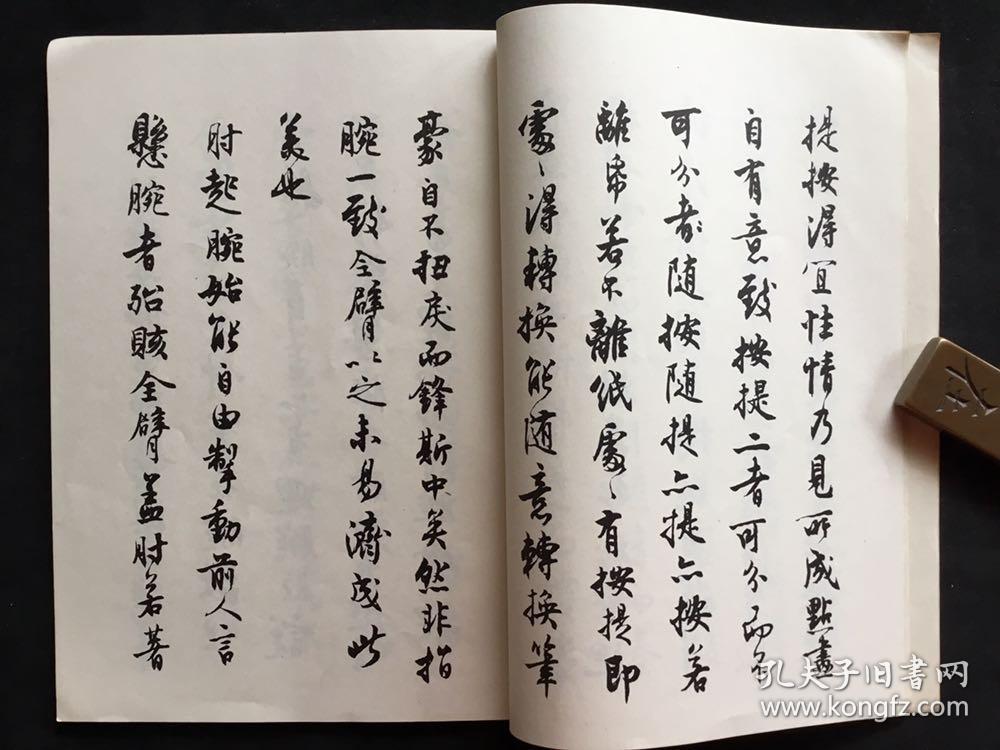 提按得宜性情乃見所成點畫
自有意致按提二者可分而不
可分者隨按隨提亦提亦按若
離希若不離紙處〻有按提即
處〻得轉換能隨意轉換筆
豪自不扭戾而鋒斯中矣然非指
腕一致全臂以之未易濟成此
美也
肘起腕始能自由掣動前人言
懸腕者孕賅全臂蓋肘若著
孔夫子旧书网
www.kongfz.com